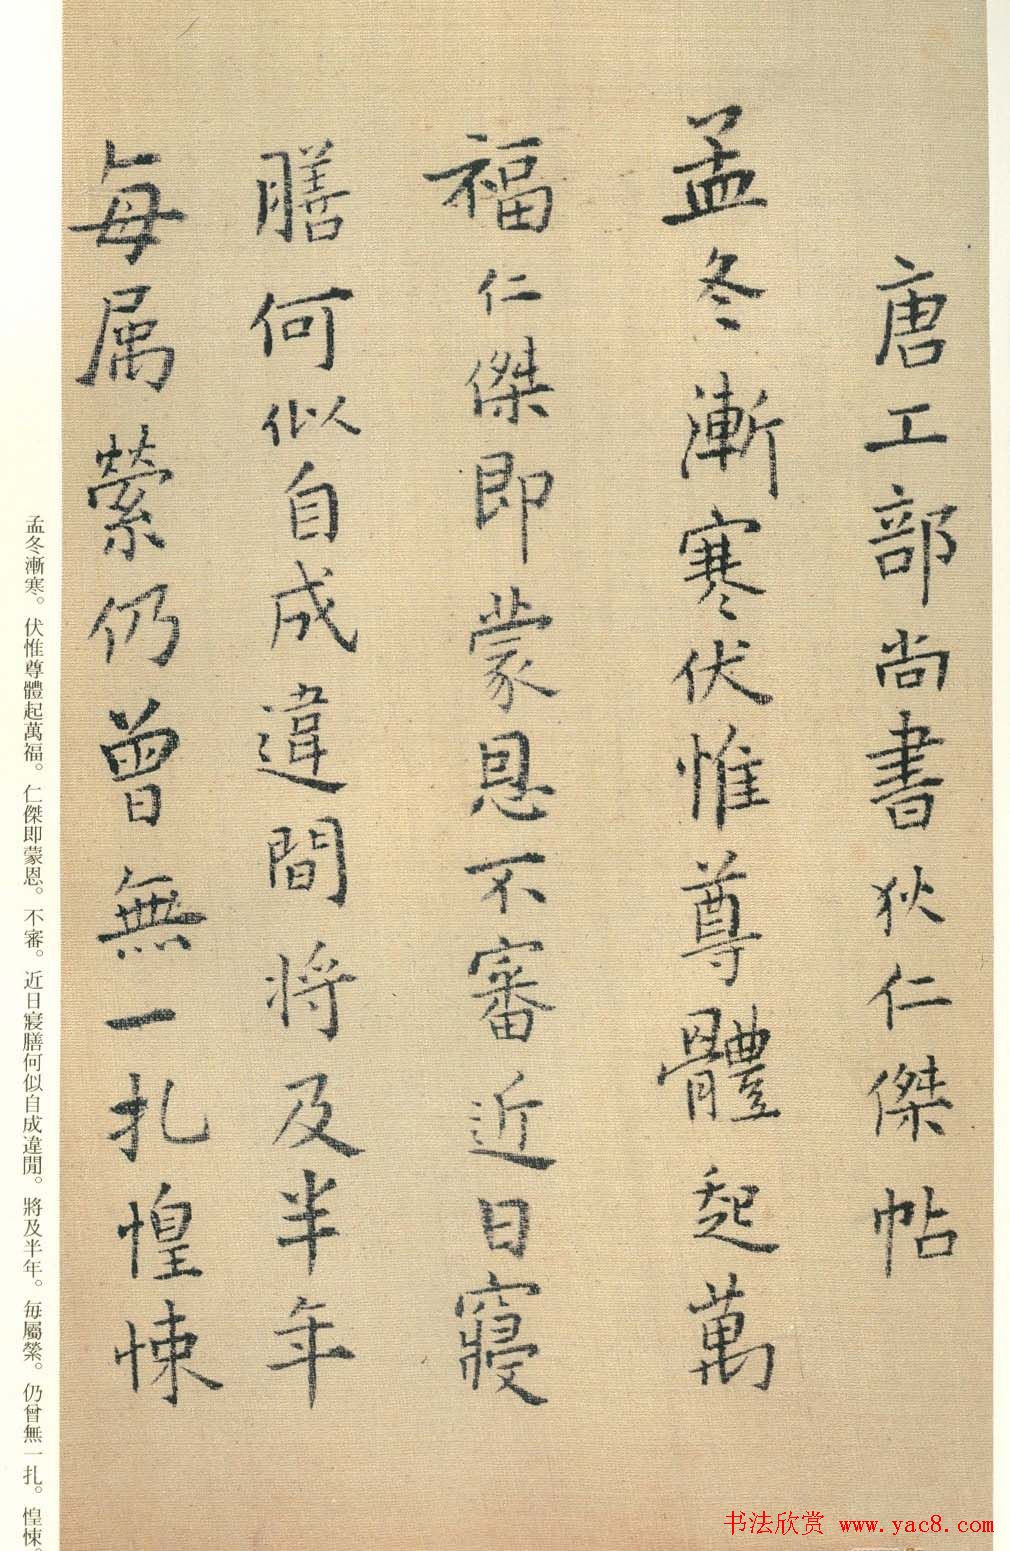 唐工部尚書狄仁傑帖
孟冬漸寒伏惟尊體起萬
福仁傑即蒙恩不審近日寢
膳何似自成違間将及半年
每属縈仍曾無一扎惶悚
孟冬漸寒。伏惟尊體起萬福。仁傑即蒙恩。不審。近日寢膳何似自成違閒。將及半年。每屬縈。仍曾無一扎。惶悚。
书法欣赏 www.yac8.com